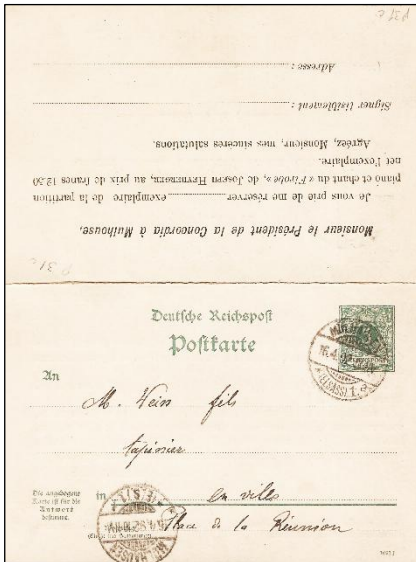 Monsieur le Président de la Concordia à Mulhouse,
Je vous prie de me réserver exemplaire de la partition
piano et chant du « Firobe », de JOSEPH HEYBERGER, au prix de francs 12.50
net l'exemplaire.
Agréez, Monsieur, mes sincères salutations.
Signer lisiblement :
Adresse :
Deutsche Reichspost
Postkarte
An
M. Wein fils
tapissier
Die angebogene
Karte ist für die
Antwort
bestimmt.
in en ville
Place de la Réunion